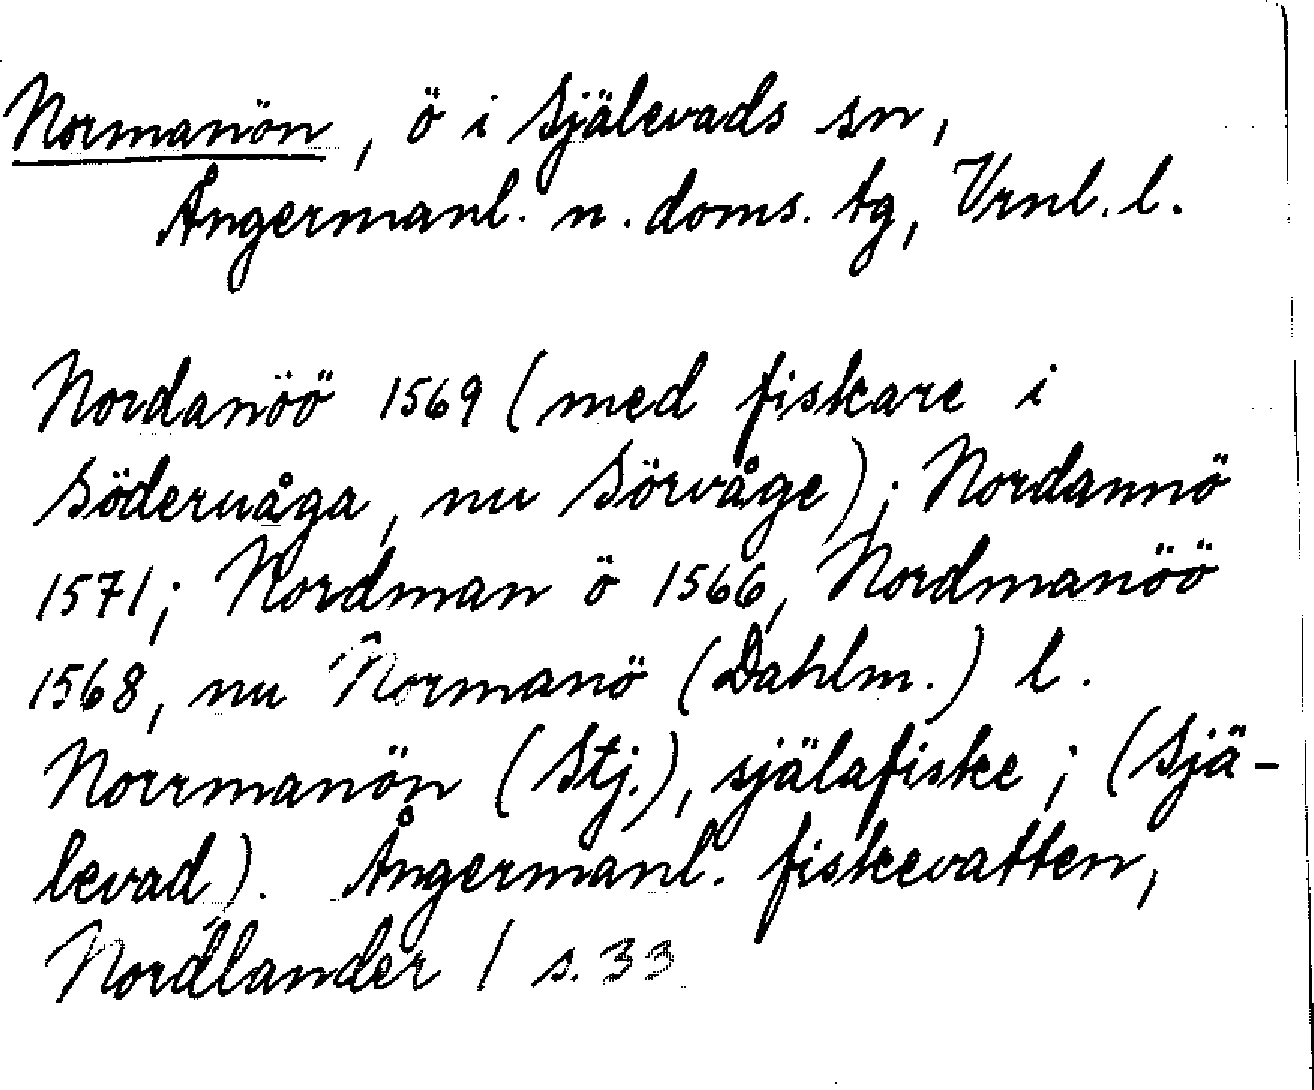 Normanön, ö i Själevads sn,
Ångermanl. n. doms. tg, Vrnl. l.
Nordanöö 1569 (med fiskare i
Söderuåga, nu Sörvåge); Nordannö
1571; Nordman ö 1566, Nordmanöö
1568, nu Normanö (Dahlm.) l.
Norrmanön (Stj.), själafiske; (Sjä-
levad). Ångermanl. fiskevatten,
Nordlander I s. 33